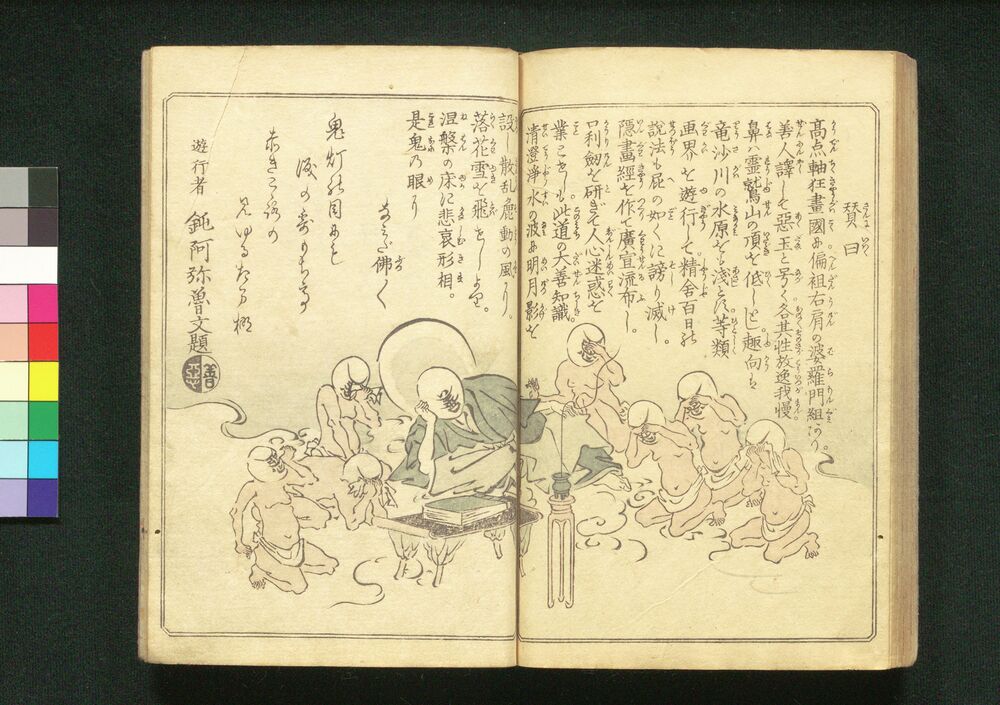 賛曰
高点軸狂畫國に偏祖右肩の婆羅門組あり。
善人譯して惡玉と号く各其性放逸我慢
鼻ハ靈鷲山の頂を低しとし趣向ハ
竜沙川の水原をも淺しとす等類
画界を遊行して精舎百日の
説法も屁の如くに謗り滅し。
隠畫經を作て廣宣流布し。
口利劔を研ぎて人心迷惑を
業とせしも此道の大善知識
清澄淨水の波に明月影を
設し散乱麁動の風より。
落花雪を飛せしより。
涅槃の床に悲哀形相。
是鬼乃眼り
なミだ佛く
鬼灯の目にも
涙の
赤き
見ゆる
遊行者
鈍阿弥魯文題
善
惡